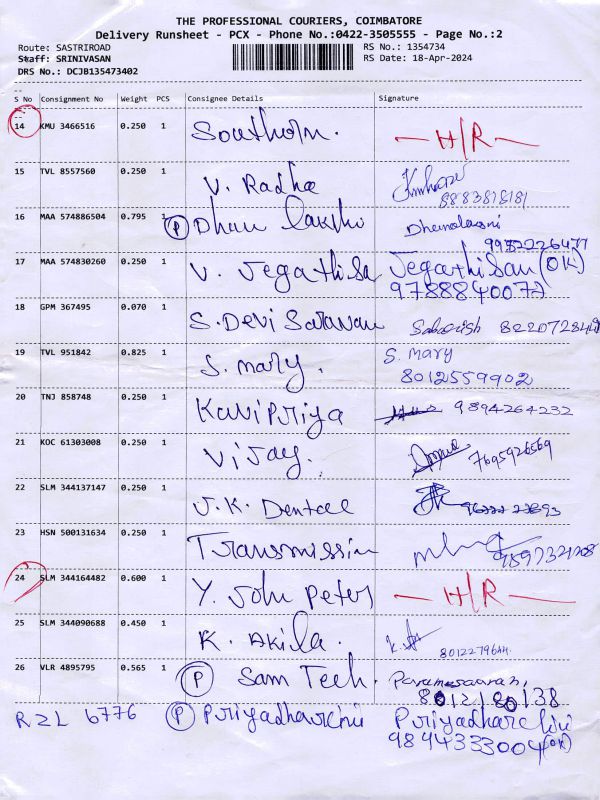 THE PROFESSIONAL COURIERS, COIMBATORE
Delivery Runsheet - PCX - Phone No.:0422-3505555 - Page No.:2
Route: SASTRIROAD RS No.: 1354734
Staff: SRINIVASAN RS Date: 18-Apr-2024
DRS No.: DCJB135473402
S No Consignment No Weight PCS Consignee Details Signature
14 KMU 3466516 0.250 1 Southern. H/R
15 TVL 8557560 0.250 1 V. Radha 8883818181
16 MAA 574886504 0.795 1 (P) Dhan Lakshi Dhanalaxmi
9952226477
17 MAA 574830260 0.250 1 V. Jegathisa Jegathisan (OK)
9788840077
18 GPM 367495 0.070 1 S. Devi Saravan Sabarish
19 TVL 951842 0.825 1 S. mary. S. Mary
8012559902
20 TNJ 858748 0.250 1 Kavipriya 9894264232
21 KOC 61303008 0.250 1 Vijay. 7695926569
22 SLM 344137147 0.250 1 J.K. Dental
23 HSN 500131634 0.250 1 Transmissin
24 SLM 344164482 0.600 1 Y John Peter H/R
25 SLM 344090688 0.450 1 K. Akila.
26 VLR 4895795 0.565 1 (P) Sam Tech. Parameswaran,
8012180138
RZL 6776 (P) Priyadharcini Priyadharshini
9894333004 (OK)